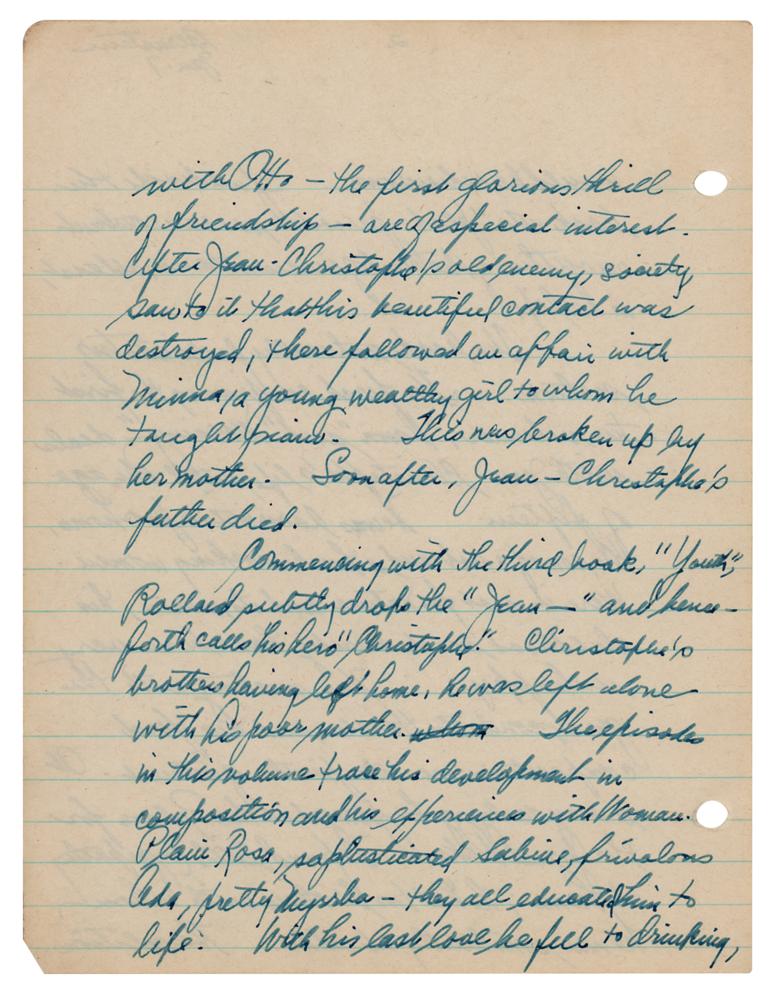 with Otto — the first glorious thrill
of friendship — are of especial interest.
After Jean-Christophe's old enemy, society
saw to it that this beautiful contact was
destroyed, there followed an affair with
Minna, a young wealthy girl to whom he
taught piano. This was broken up by
her mother. Soon after, Jean-Christophe's
father died.
Commencing with the third book, "Youth",
Rolland subtly drops the "Jean—" and hence-
forth calls his hero "Christophe." Christophe's
brothers having left home, he was left alone
with his poor mother. whom The episodes
in this volume trace his development in
composition and his experiences with Woman.
Plain Rosa, sophisticated Sabine, frivolous
Ada, pretty Myrrha — they all educated him to
life. With his last love he fell to drinking,